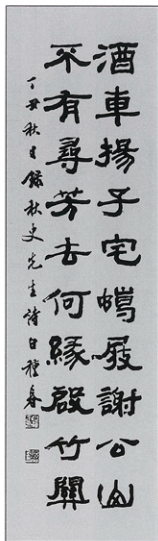 酒車揚子宅蠟屐謝公山
不有尋芳去何緣啟竹關
丁丑秋日錄秋史先生詩白種春